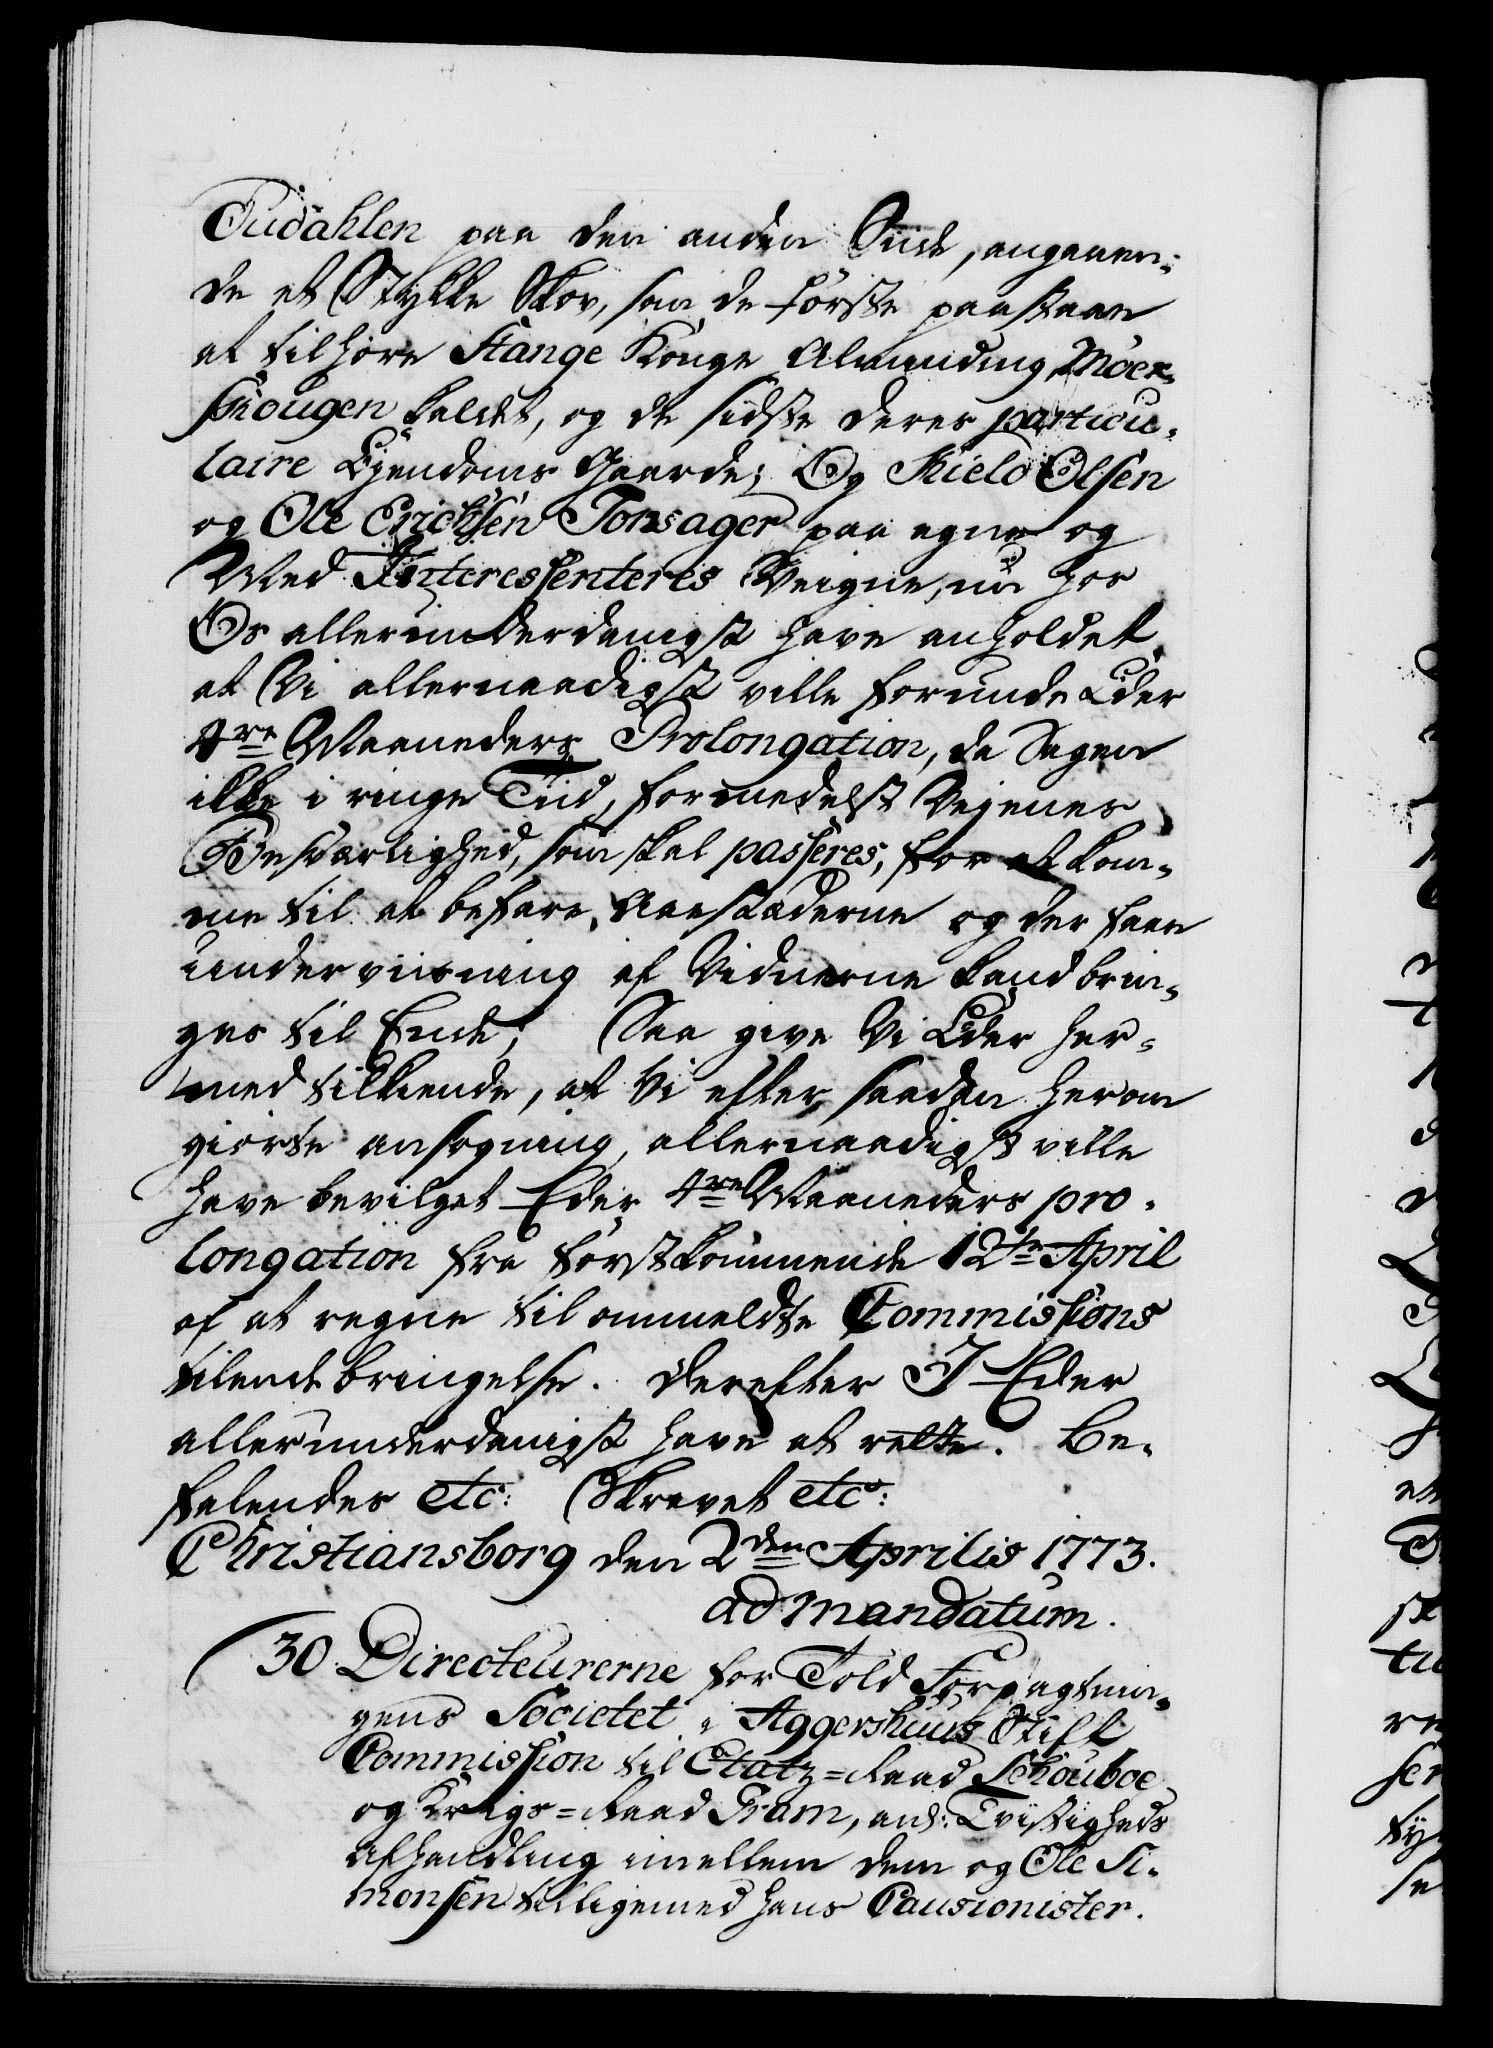 Tudahlen paa den anden Siide, angaaen-
de et Stykke Skov, som de første paastaae
at tilhøre Stange Konge Alminding, Moer-
skougen kaldet, og de sidste deres particu-
laire Ejendoms Gaarde; Og Kield Olsen
og Ole Erichsen Tonsager paa egne og
Med Interessenteres Veigne, nu hos
Os allerunderdanigst have anholdet
at Vi allernaadigst ville forunde Eder
4re Maaneders Prolongation, da Sagen
ikke i ringe Tiid, formedelst Vejenes
Besværlighed, som skal passeres, for at kom-
me til at befare Aastæderne og der faae
underviisning af Vidnerne kand brin-
ges til Ende; Saa give Vi Eder her-
med tilkiende, at Vi efter saadan herom
giorte ansøgning, allernaadigst ville
have bevilget Eder 4re Maaneders pro-
longation fra førstkommende 12te April
af at regne til ommeldte Commissions
tilendebringelse. Derefter I Eder
allerunderdanigst have at rette. Be-
falendes etc: Skrevet etc:
Christiansborg den 2den Aprilis 1773.
ad mandatum.
30. Directeurerne for Told Forpagtnin-
gens Societet i Aggershuus Stift
Commission til Etatz-Raad Schouboe
og Krigs-Raad Gram, anl: Tvistigheds
Afhandling imellem dem og Ole Si-
monsen tilligemed hans Causionister.